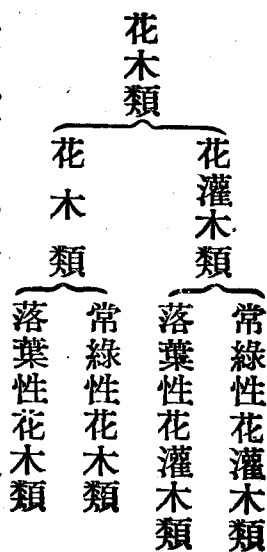 花木類
花灌木類
花木類
常綠性花灌木類
落葉性花灌木類
常綠性花木類
落葉性花木類